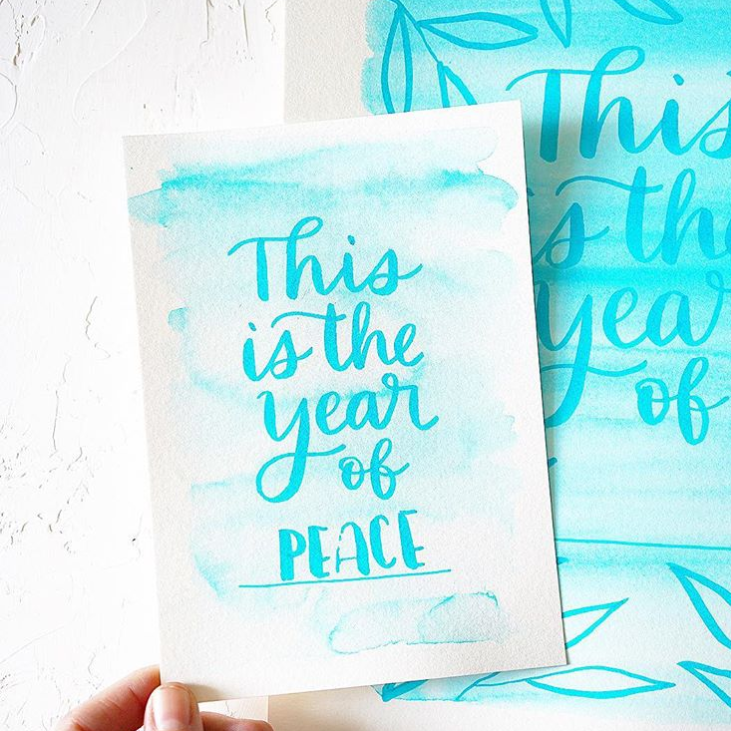 This
is the
year
of
PEACE
This
is the
year
of